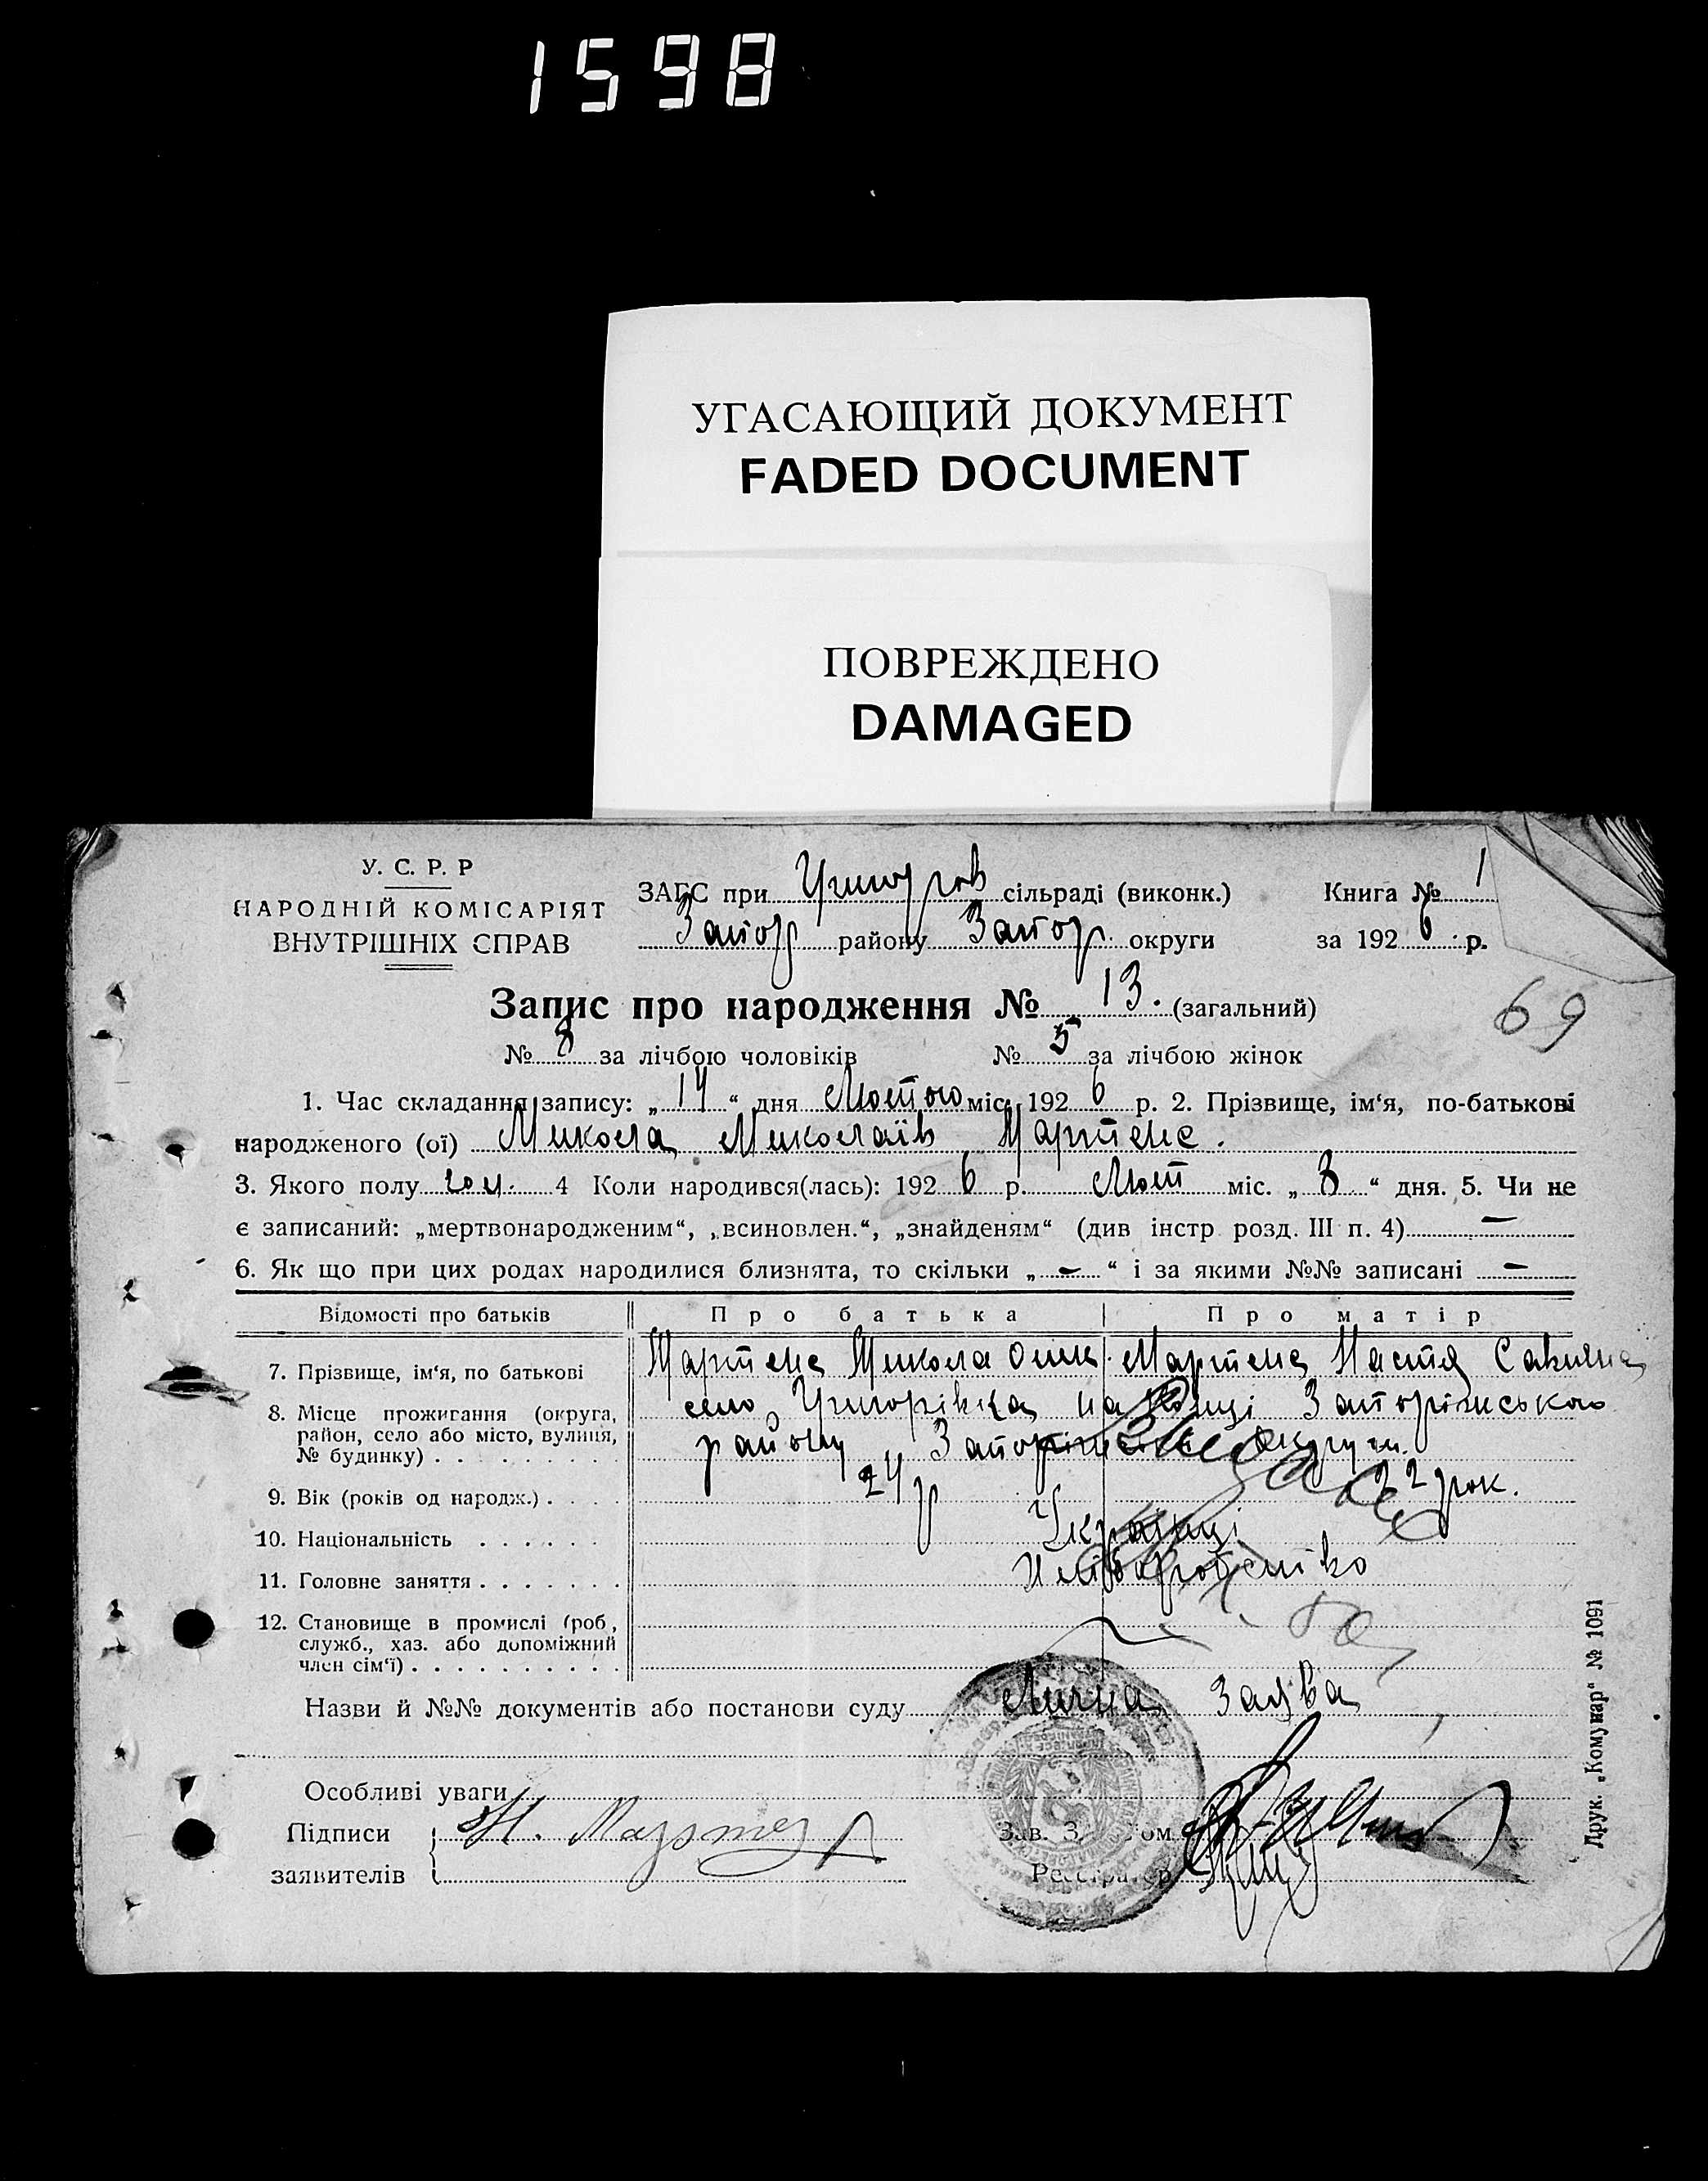 1598
УГАСАЮЩИЙ ДОКУМЕНТ
FADED DOCUMENT
ПОВРЕЖДЕНО
DAMAGED
У. С. Р. Р
НАРОДНІЙ КОМІСАРІЯТ
ВНУТРІШНІХ СПРАВ
ЗАГС при сільраді (виконк.)
Запор району Запор. округи
Книга № 1
за 1926 р.
Запис про народження № 13. (загальний)
69
№ 8 за лічбою чоловіків № 5 за лічбою жінок
1. Час складання запису: „14“ дня Лютого міс. 1926 р. 2. Прізвище, ім‘я, по-батькові
народженого (ої) Микола Миколаїв Мартенс.
3. Якого полу чол. 4 Коли народився(лась): 1926 р. Лют міс. „8“ дня. 5. Чи не
є записаний: „мертвонародженим“, „всиновлен.“, „знайденям“ (див інстр розд. III п. 4) —
6. Як що при цих родах народилися близнята, то скільки „—“ і за якими №№ записані —
Відомості про батьків Про батька Про матір
7. Прізвище, ім‘я, по батькові Мартенс Микола Мартенс Настя
8. Місце прожигання (округа,
район, село або місто, вулиця,
№ будинку)
село Запоріжського
району округи.
9. Вік (років од народж.) 24 р 22 рок.
10. Національність Українці
11. Головне заняття Хліборобство
12. Становище в промислі (роб,
служб., хаз. або допоміжний
член сім‘ї)
Назви й №№ документів або постанови суду Лична Заява
Особливі уваги
Підписи
заявителів
Н. Мартенс
Зав. З ом
Реєстратор
Друк. „Комунар“ № 1091